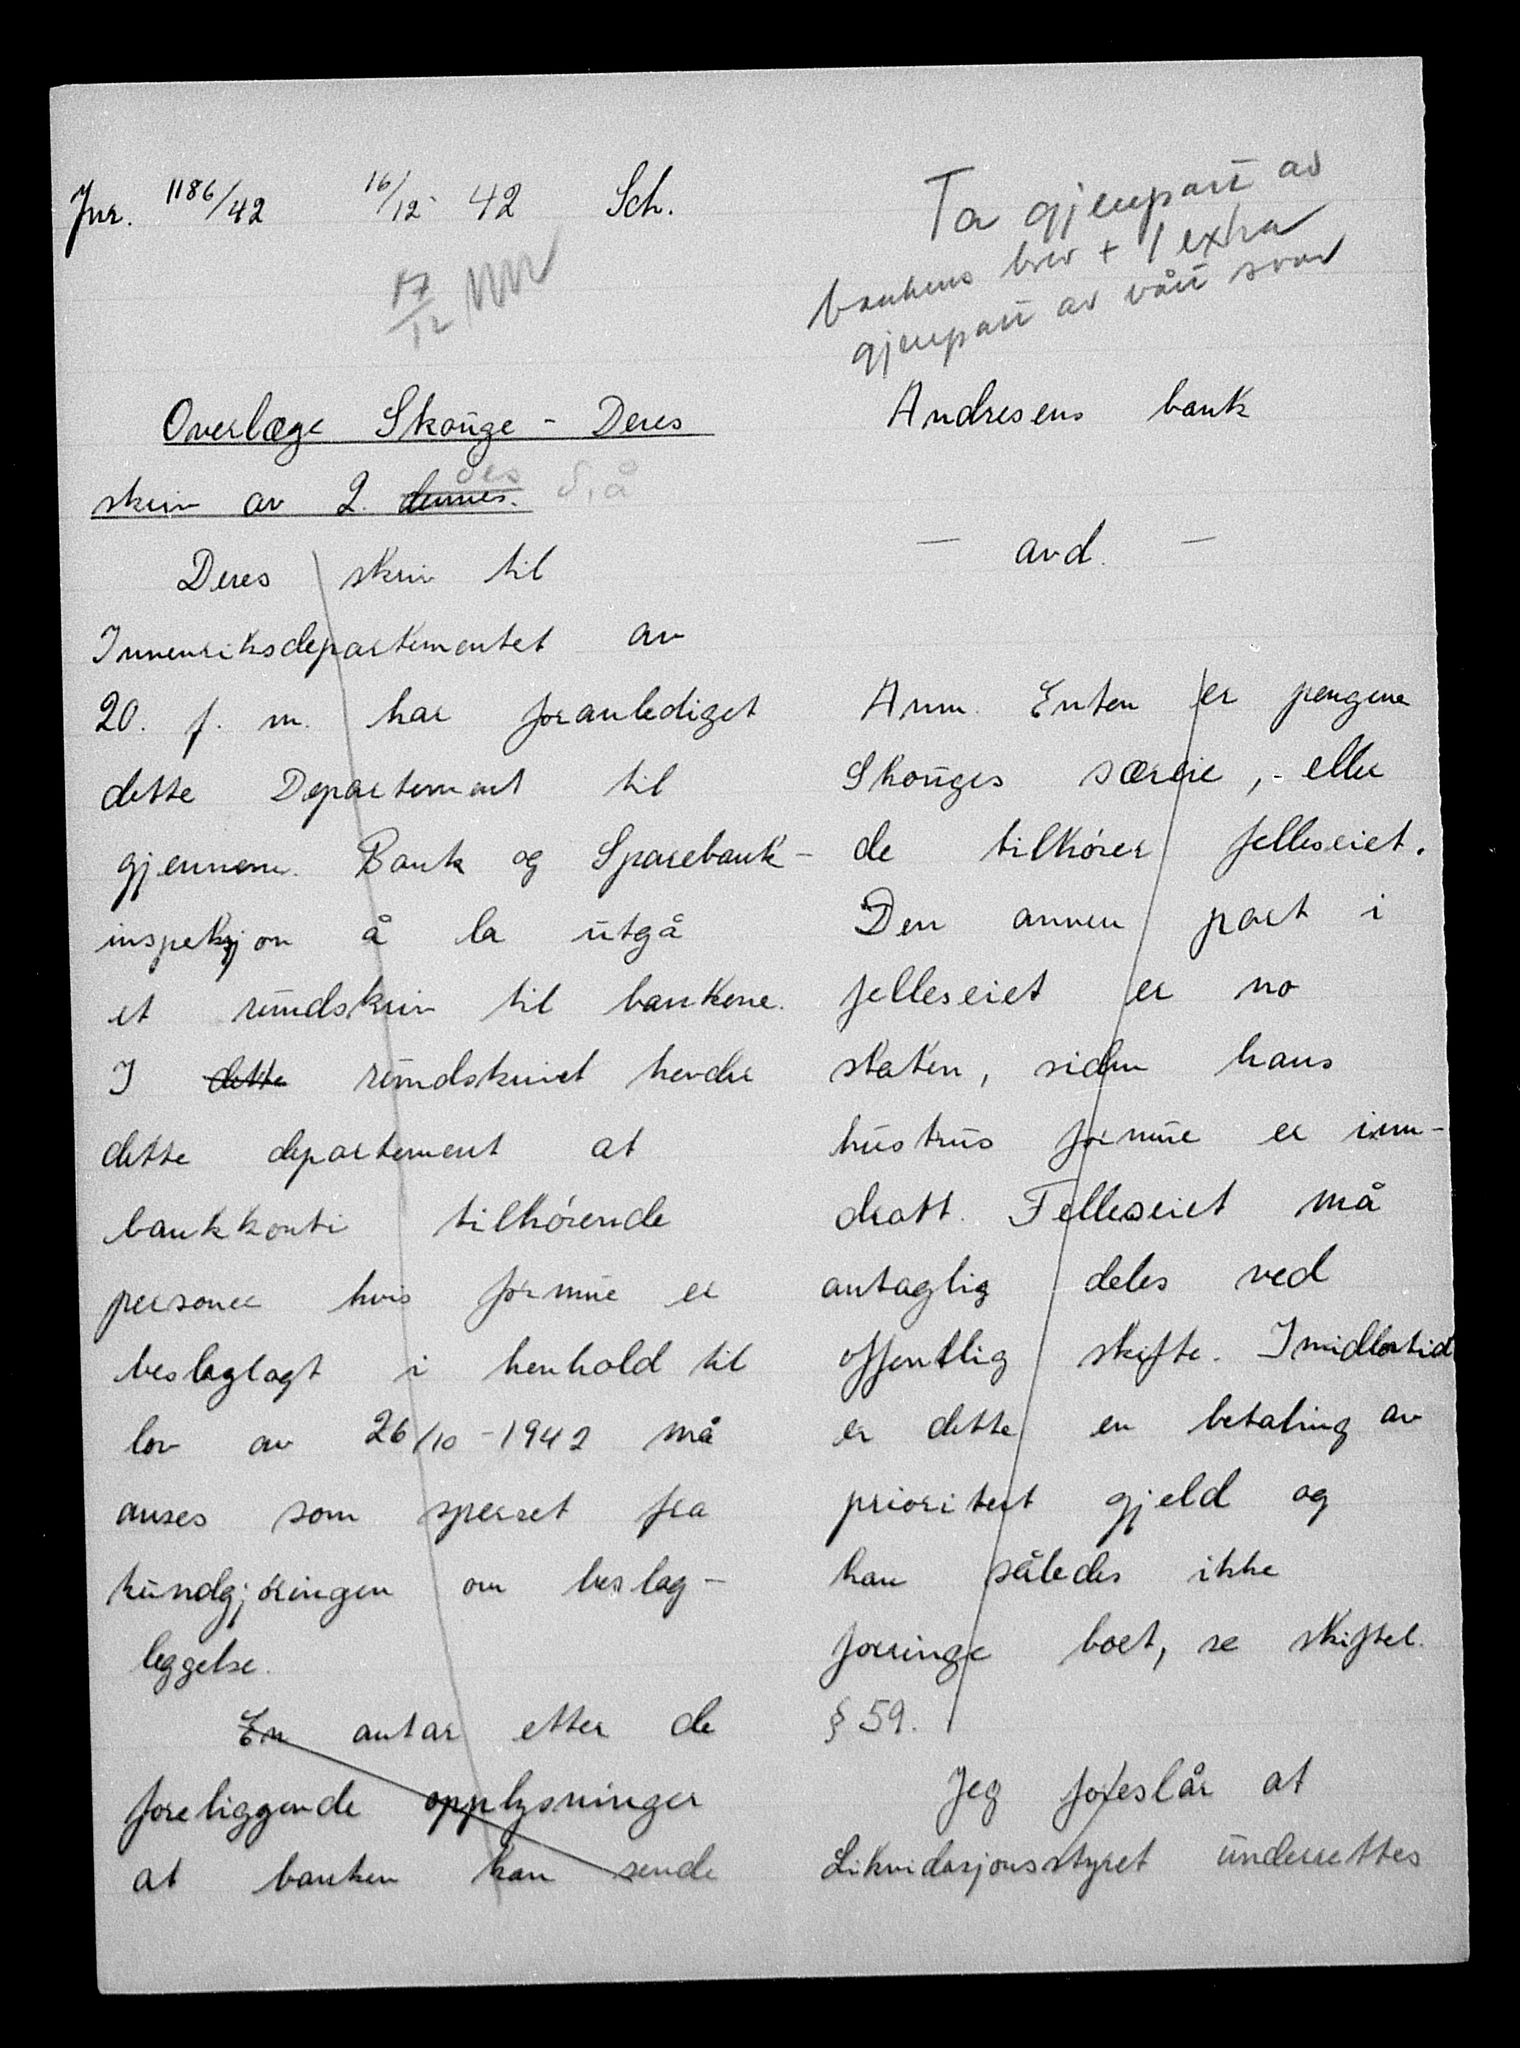 Jnr. 1186/42 16/12 42 Sch.
17/12
Overlæge Skouge - Deres
skriv av 2. dennes. des d,å
Deres skriv til
Innenriksdepartementet av
20. f. m. har foranlediget
dette Departement til
gjennem Bank og Sparebank-
inspeksjon å la utgå
et rundskriv til bankene.
I dette rundskrivet hevder
dette departement at
bankkonti tilhørende
personer hvis formue er
beslaglagt i henhold til
lov av 26/10-1942 må
anses som sperret fra
kundgjøringen om beslag-
leggelse.
En antar etter de
foreliggende opplysninger
at banken kan sende
Ta gjenpart av
bankens brev + 1 extra
gjenpart av vårt svar
Andresens bank
- avd. -
Anm. Enten er pengene
Skouges særeie, - eller
de tilhører felleseiet.
Den annen part i
felleseiet er no
staten, siden hans
hustrus formue er inn-
dratt. Felleseiet må
antaglig deles ved
offentlig skifte. Imidlertid
er dette en betaling av
prioritert gjeld og
kan således ikke
forringe boet, se skiftel.
§ 59.
Jeg foreslår at
Likvidasjonsstyret underrettes